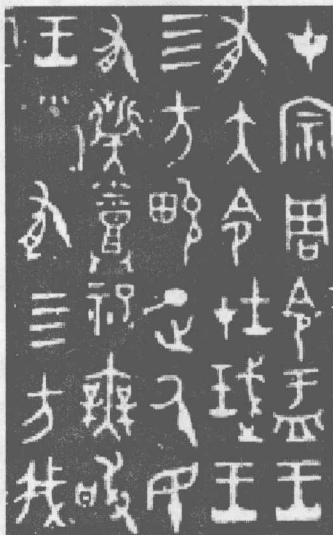 才宗周令盂王
有大令在珷王
亖方畯正厥民
有髭蒸祀無敢
王有亖方我